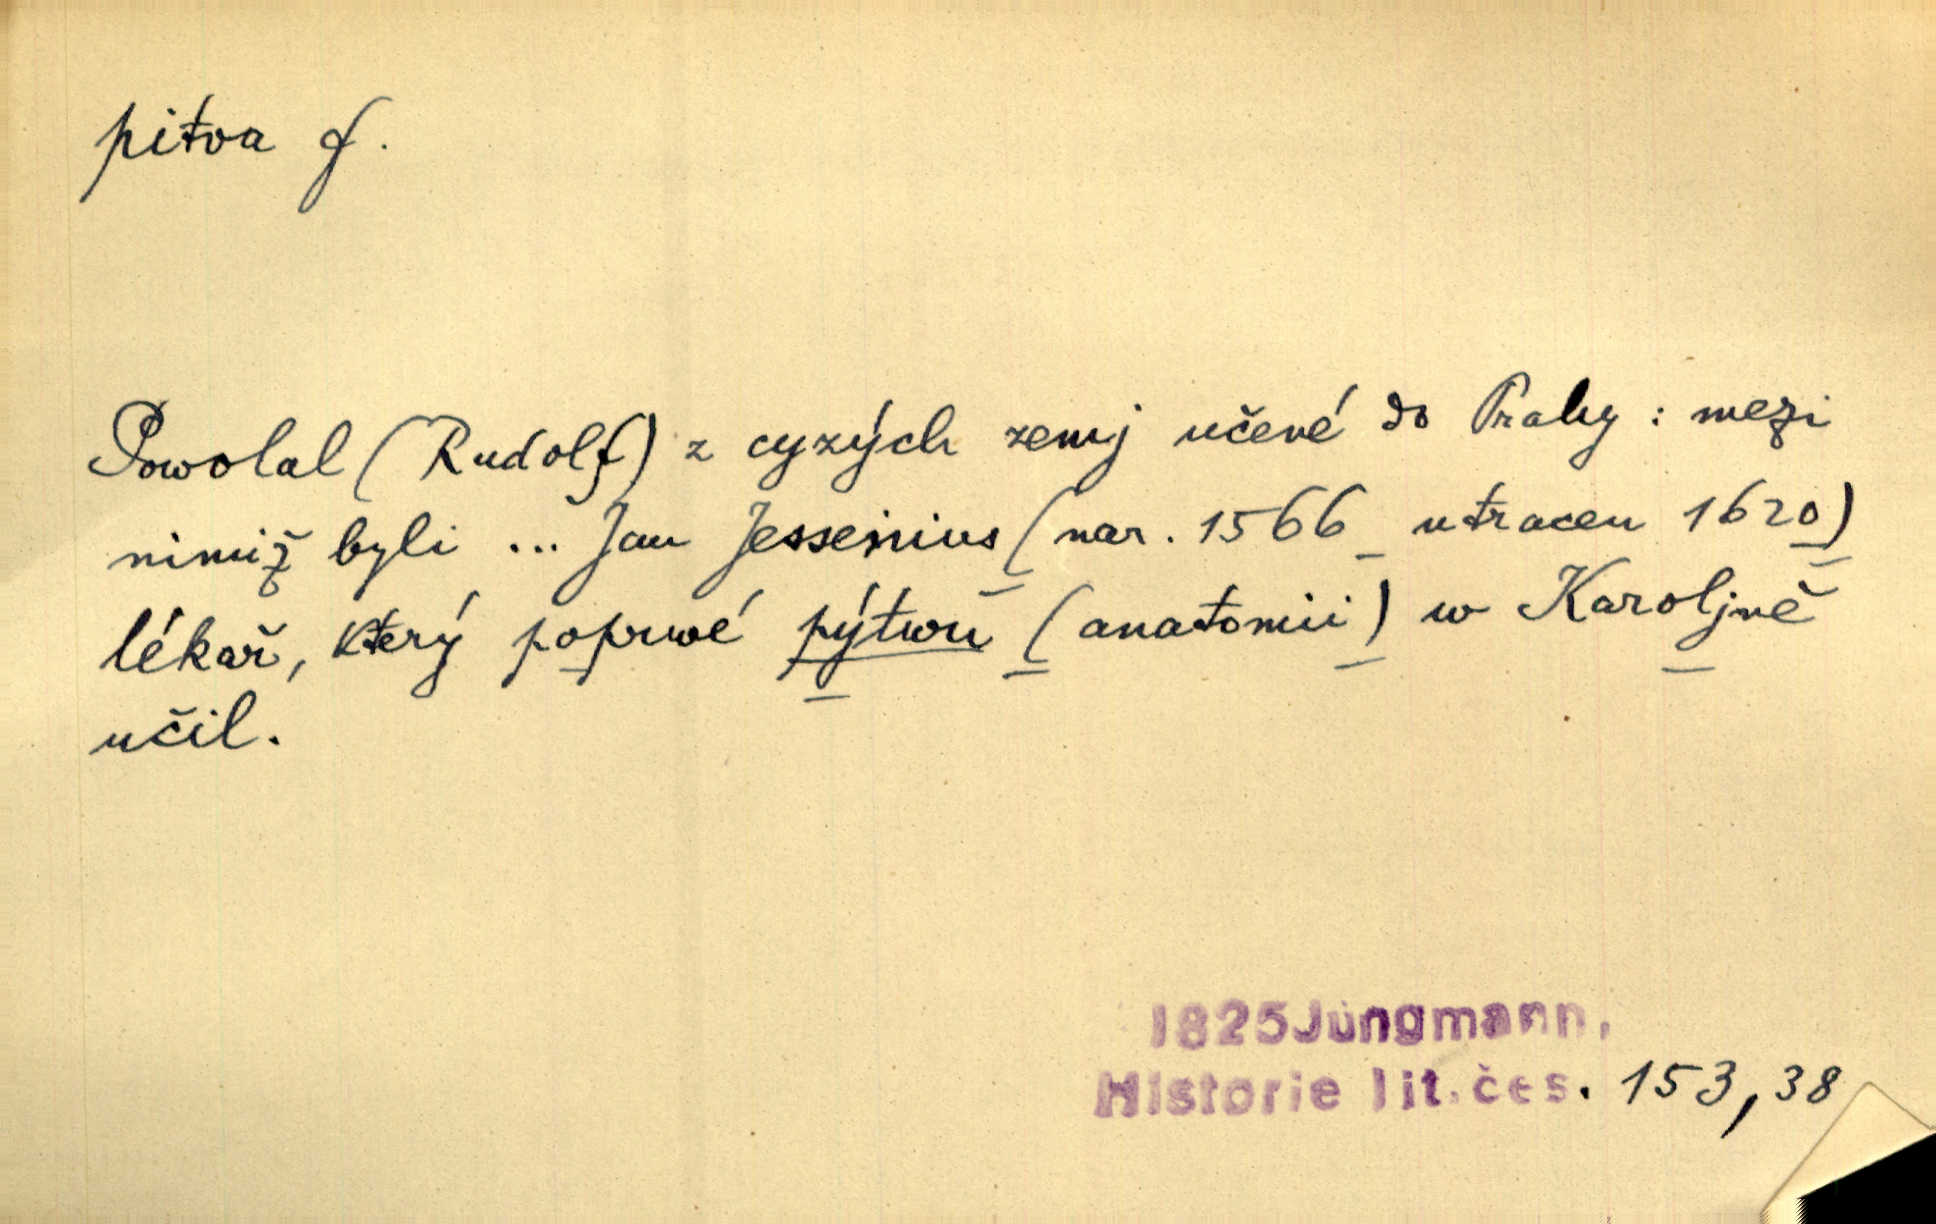 pitva f.
Powolal (Rudolf) z cyzých zemj učené do Prahy : mezi
nimiž byli ... Jan Jessenius (nar. 1566 utracen 1620)
lékař, který poprwé pýtwu (anatomii) w Karoljně
učil.
1825 Jungmann,
Historie lit. čes. 153,38